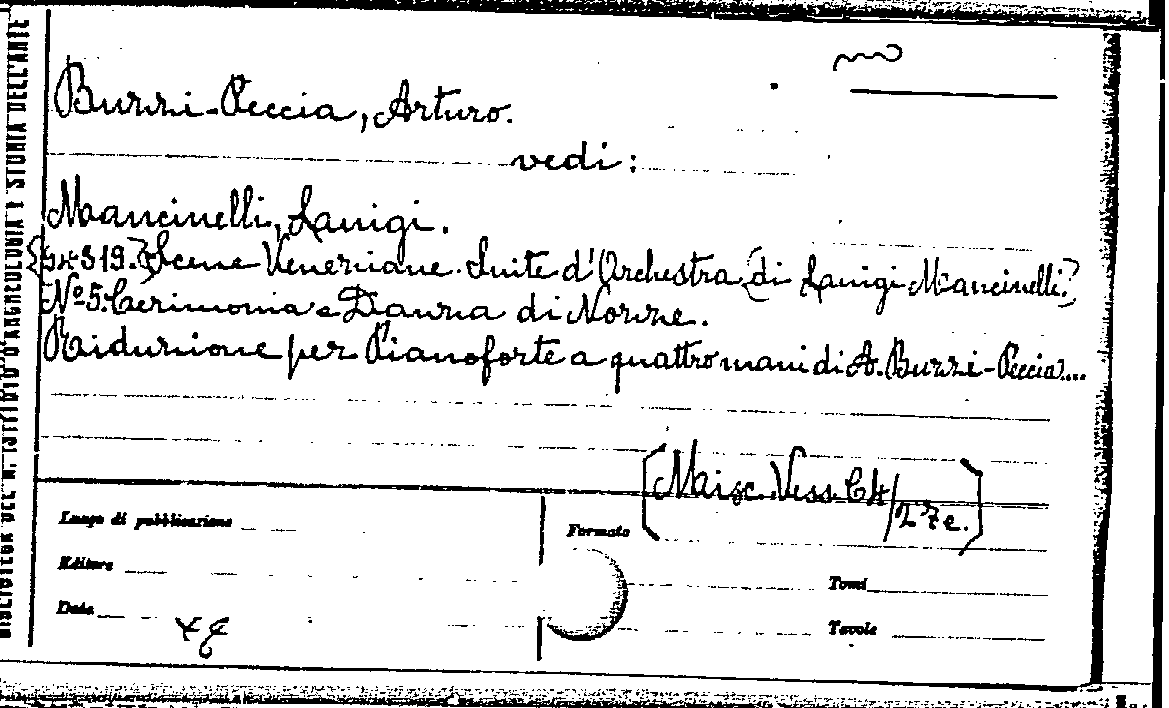 Buzzi-Peccia, Arturo.
vedi:
Mancinelli, Luigi.
Scene Veneziane. Suite d'Orchestra (di Luigi Mancinelli.)
Nº 5. Cerimonia e Danza di Nozze.
Riduzione per Pianoforte a quattro mani di A. Buzzi-Peccia....
[Misc. Vess. C4/
Luogo di pubblicazione
Formato
Editore
Tomi
Data
Tavole
BIBLIOTECA DEL R. ISTITUTO D'ARCHEOLOGIA E STORIA DELL'ARTE